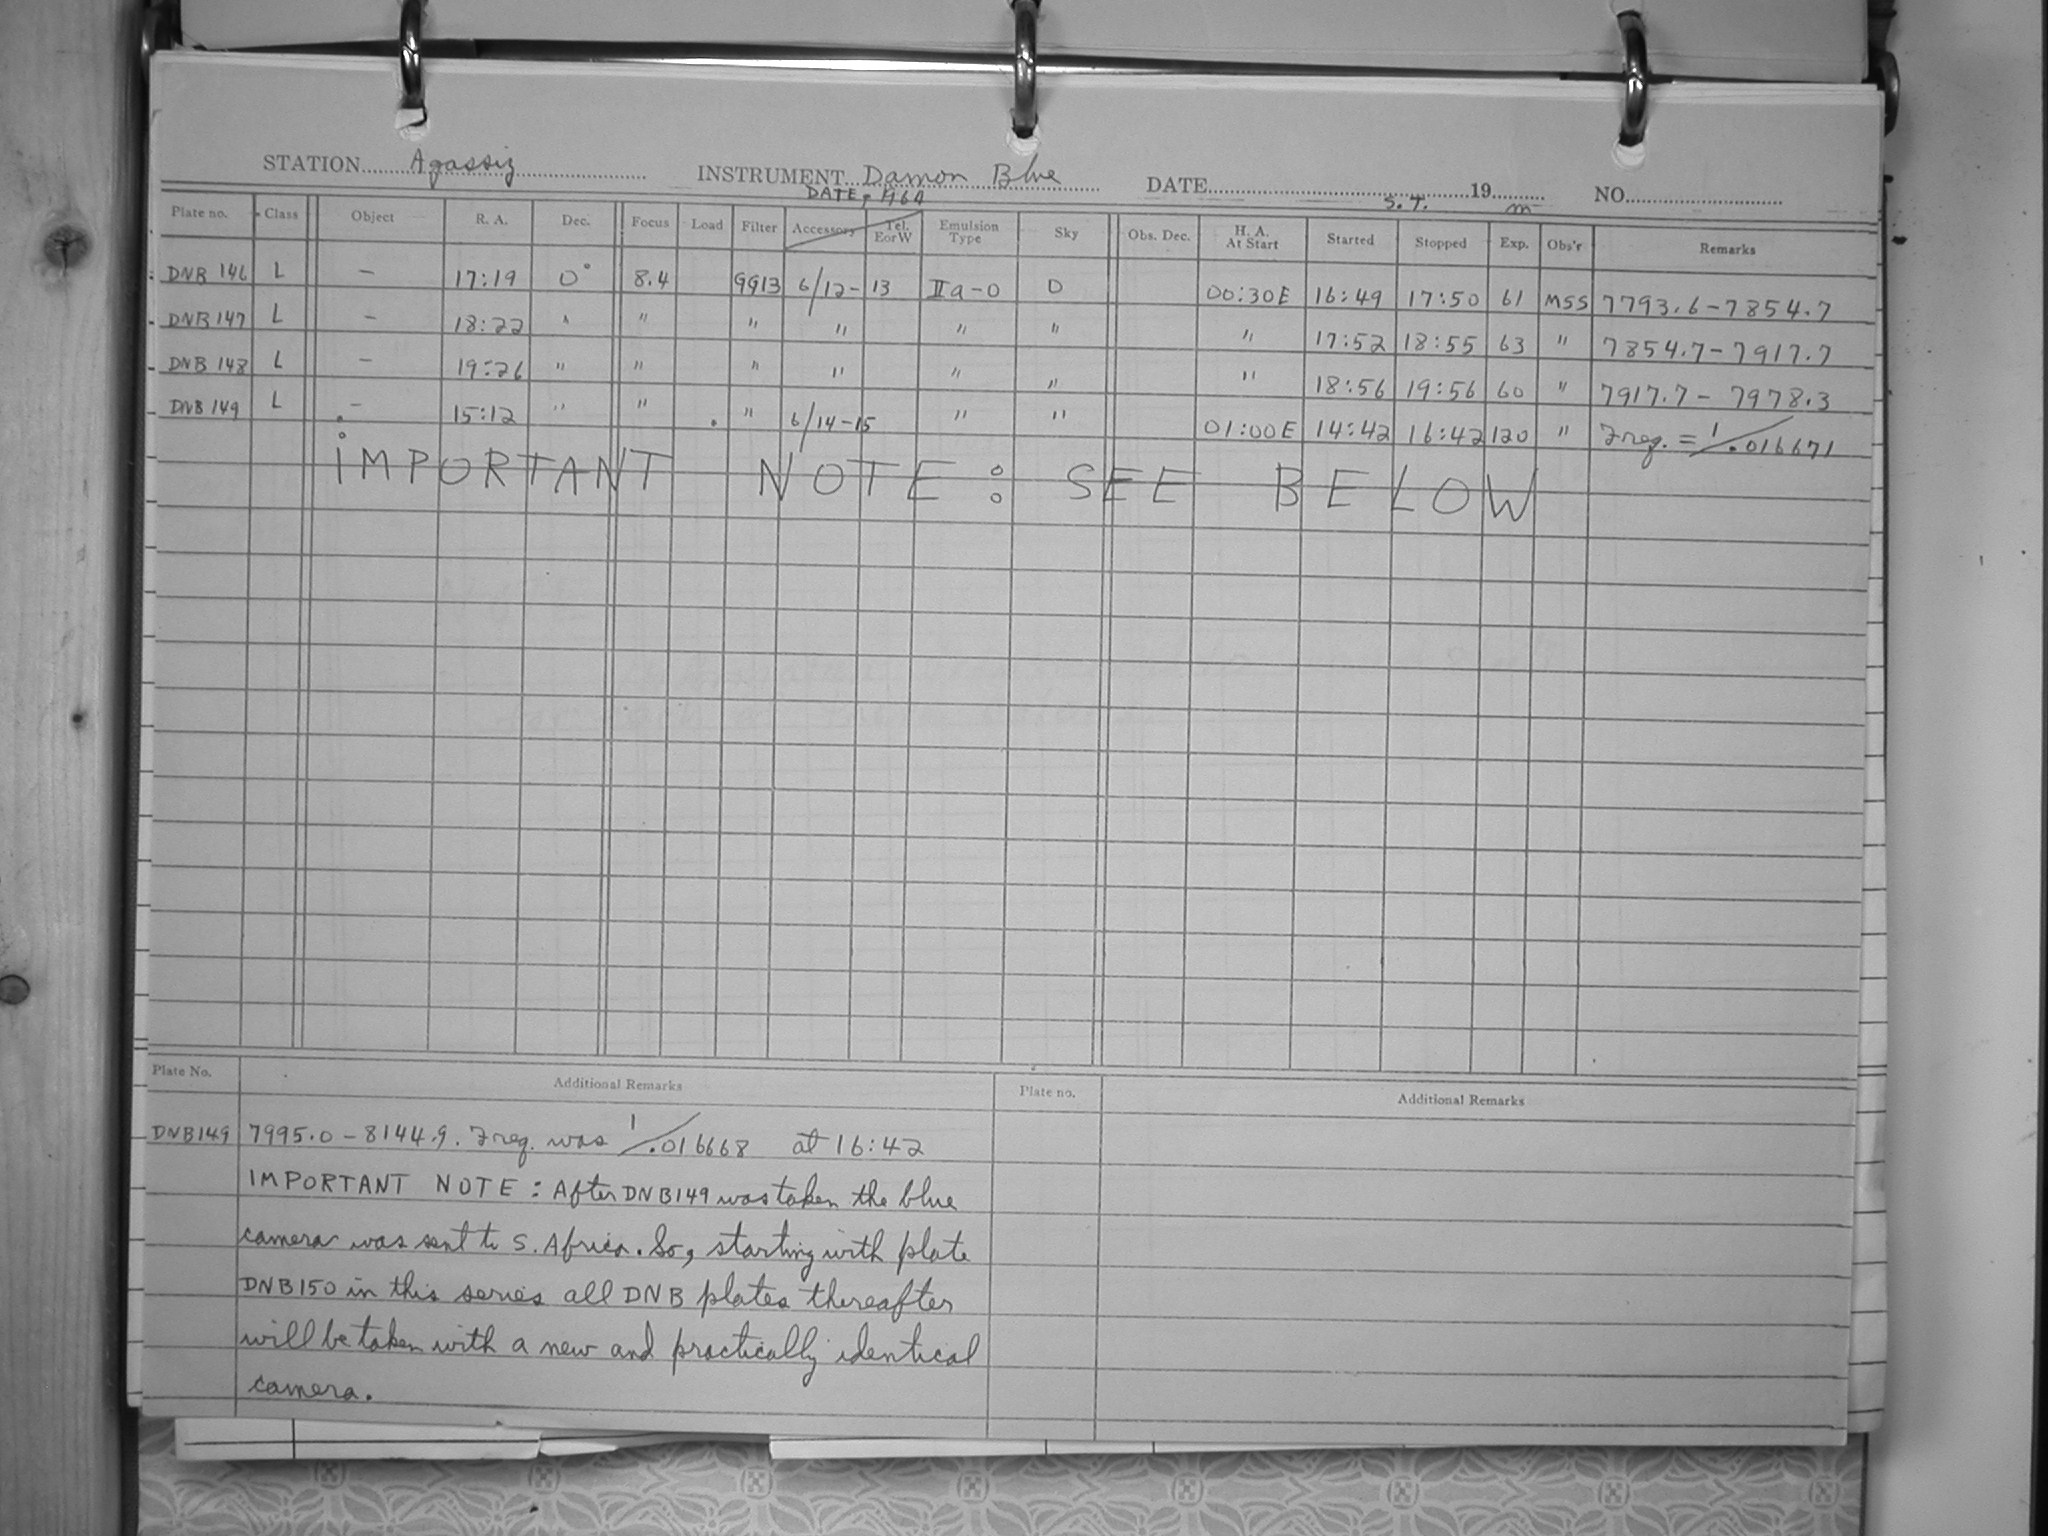 STATION Agassiz INSTRUMENT Damon Blue DATE 19 NO.
DATE, 1964 S.T. m
Plate no. Class Object R. A. Dec. Focus Load Filter Accessory Tel. E or W Emulsion Type Sky Obs. Dec. H. A. At Start Started Stopped Exp. Obs'r Remarks
DNB 146 L — 17:19 0° 8.4 GG13 6/12-13 IIa-O D 00:30E 16:49 17:50 61 MSS 7793.6-7854.7
DNB 147 L — 18:22 " " " " " " " 17:52 18:55 63 " 7854.7-7917.7
DNB 148 L — 19:26 " " " " " " " 18:56 19:56 60 " 7917.7-7978.3
DNB 149 L — 15:12 " " " 6/14-15 " " 01:00E 14:42 16:42 120 " Freq. = 1/.016671
IMPORTANT NOTE: SEE BELOW
Plate No. Additional Remarks Plate no. Additional Remarks
DNB149 7995.0-8144.9. Freq. was 1/.016668 at 16:42
IMPORTANT NOTE: After DNB149 was taken the blue
camera was sent to S. Africa. So, starting with plate
DNB150 in this series all DNB plates thereafter
will be taken with a new and practically identical
camera.